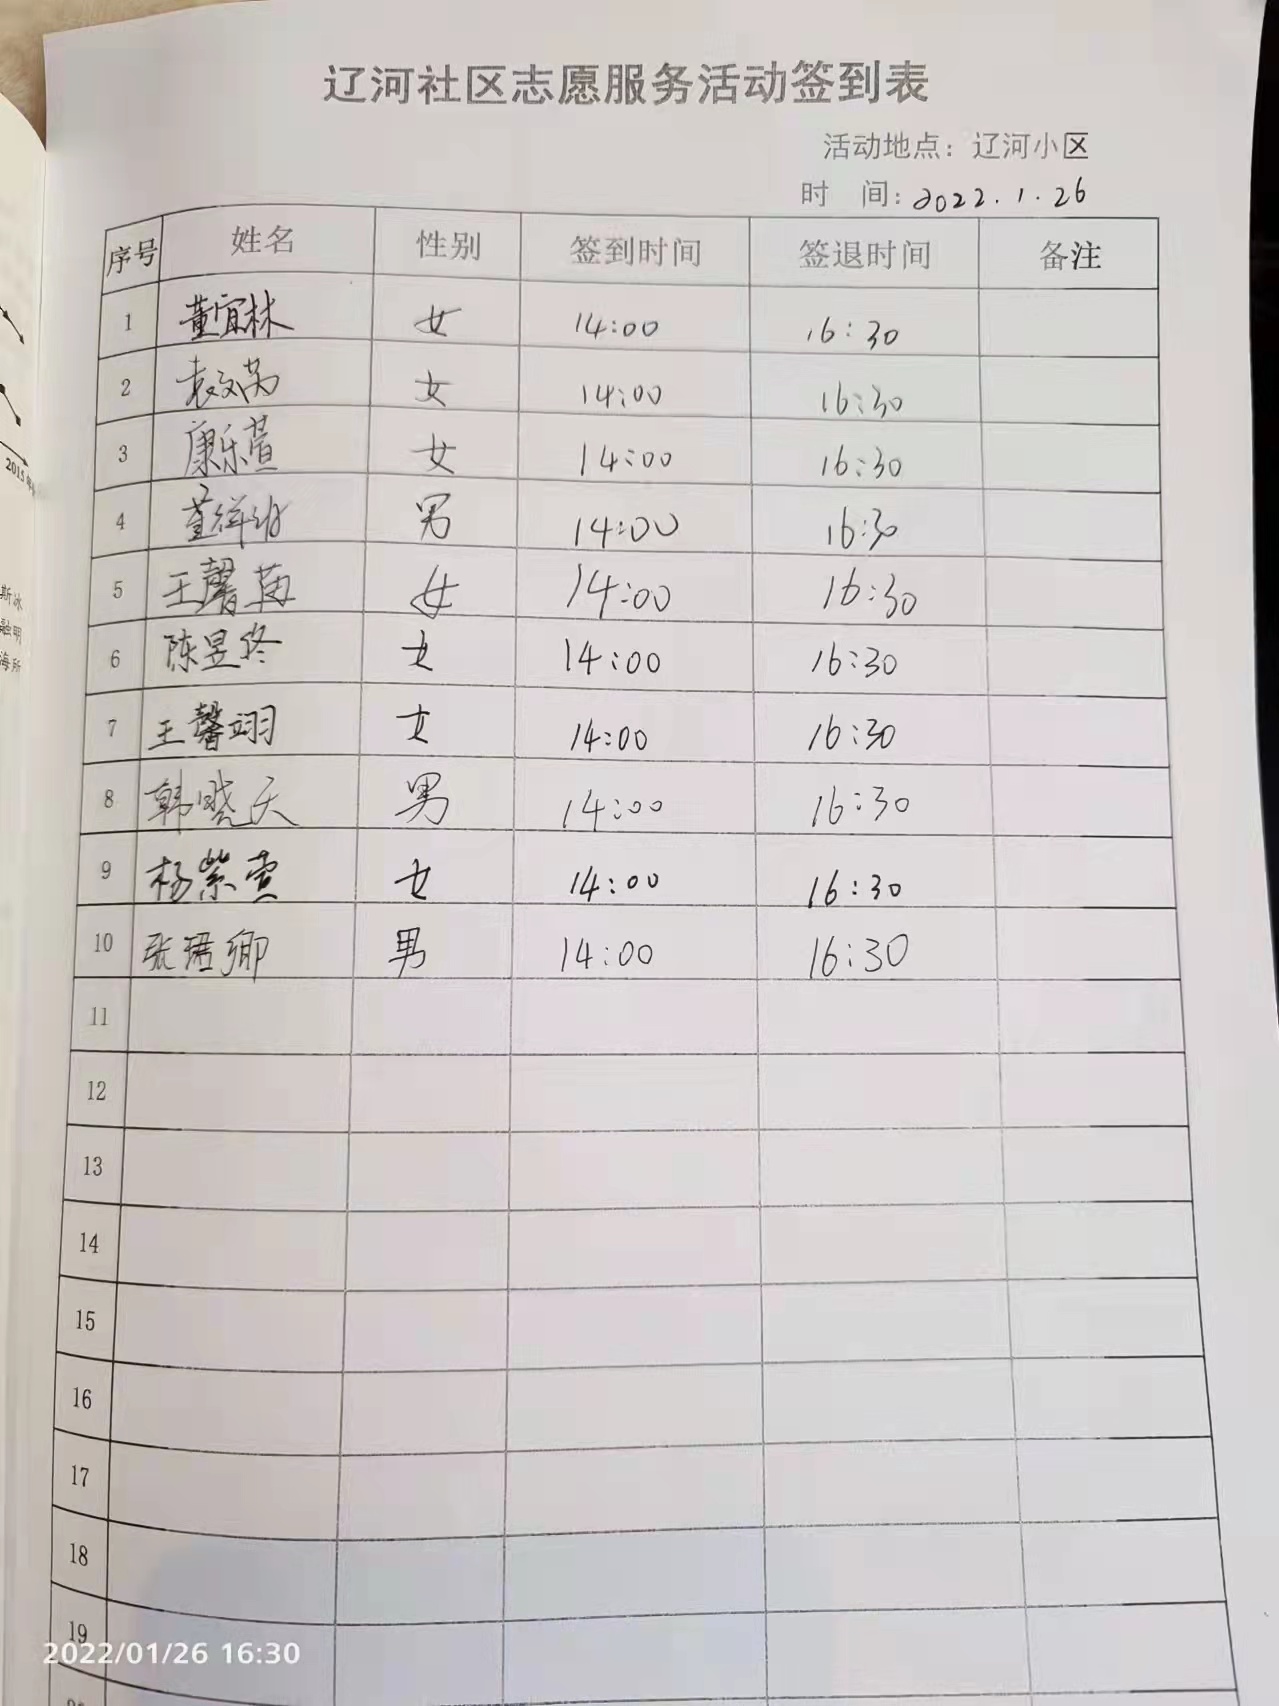 辽河社区志愿服务活动签到表
活动地点：辽河小区
时 间：2022.1.26
序号 姓名 性别 签到时间 签退时间 备注
1 董宜林 女 14:00 16:30
2 袁 女 14:00 16:30
3 康乐萱 女 14:00 16:30
4 董 男 14:00 16:30
5 王馨 女 14:00 16:30
6 陈昱 女 14:00 16:30
7 王馨翊 女 14:00 16:30
8 韩晓天 男 14:00 16:30
9 杨紫萱 女 14:00 16:30
10 张珺卿 男 14:00 16:30
11
12
13
14
15
16
17
18
19
2022/01/26 16:30
2015
斯冰
融明
海所